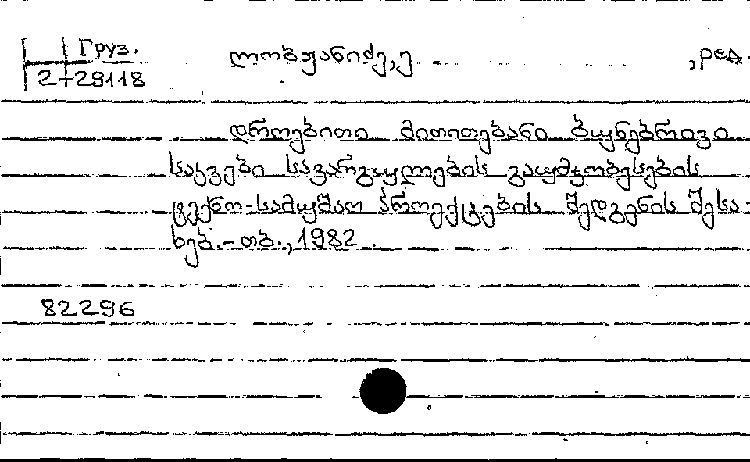 Груз.
2-29118
ლობჟანიძე, ე. ,ред.
დროებითი მითითებანი ბუნებრივი
საკვები სავარგულების გაუმჯობესების
ტექნო-სამუშაო პროექტების შედგენის შესა-
ხებ.-თბ., 1982
82296